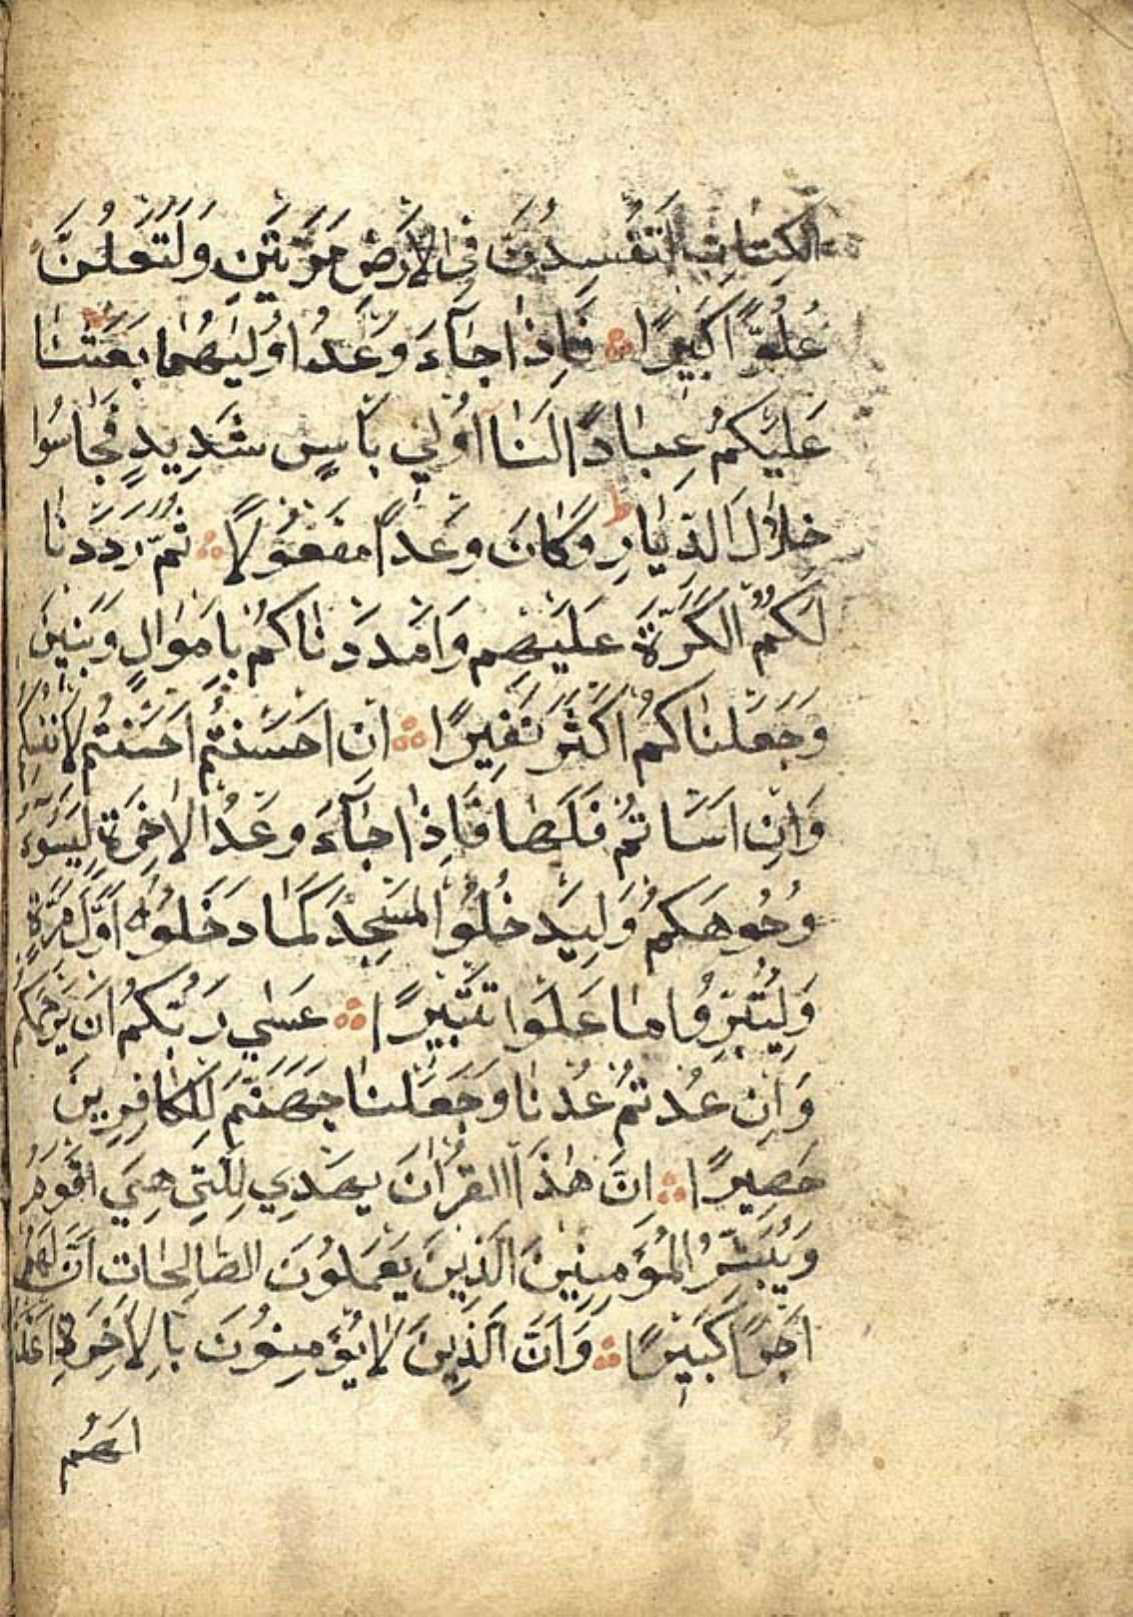 الكِتابِ لَتُفْسِدُنَّ فِى الاَرْضِ مَرَّتَيْنِ وَلَتَعْلُنَّ
عُلُوًّا كَبيرًا فَاِذٰا جٰآءَ وَعْدُ اُوْليٰهُمٰا بَعَثْنٰا
عَلَيْكُمْ عِبٰادًا لَنٰا اُولي بَأسٍ شَديدٍ فَجٰاسُوا
خِلاٰلَ الدِّيٰارِ ط وَكٰانَ وَعْدًا مَفْعُولاً ثُمَّ رَدَدْنٰا
لَكُمُ الكَرَّةَ عَلَيْهِم وَاَمْدَدْنٰاكُمْ بِاَمْوٰالٍ وَبَنينَ
وَجَعَلْنٰاكُمْ اَكْثَرَ نَفيرًا اِنْ اَحْسَنْتُمْ اَحْسَنْتُمْ لِاَنْفُسِكُمْ
وَاِنْ اَسَاتُمْ فَلَهٰا فَاِذٰا جٰآءَ وَعْدُ الاٰخِرَةِ لِيَسُوٓءُ
وُجُوهَكُمْ وَلِيَدْخُلُوا المَسْجِدَ كَمٰا دَخَلُوهُ اَوَّلَ مَرَّةٍ
وَلِيُتَبِّرُوا مٰا عَلَوْا تَتْبيرًا عَسٰي رَبُّكُمْ اَنْ يَرْحَمَكُمْ
وَاِنْ عُدْتُمْ عُدْنٰا وَجَعَلْنٰا جَهَنَّمَ لِلْكٰافِرينَ
حَصيرًا اِنَّ هٰذَا القُرْاٰنَ يَهْدي لِلَّتي هِيَ اَقْوَمُ
وَيُبَشِّرُ المُؤْمِنينَ الَّذينَ يَعْمَلُونَ الصّٰالِحٰاتِ اَنَّ لَهُمْ
اَجْرًا كَبيرًا وَاَنَّ الَّذينَ لاٰ يُؤْمِنُونَ بِالاٰخِرَةِ اَعْتَدْنٰا
لَهُمْ